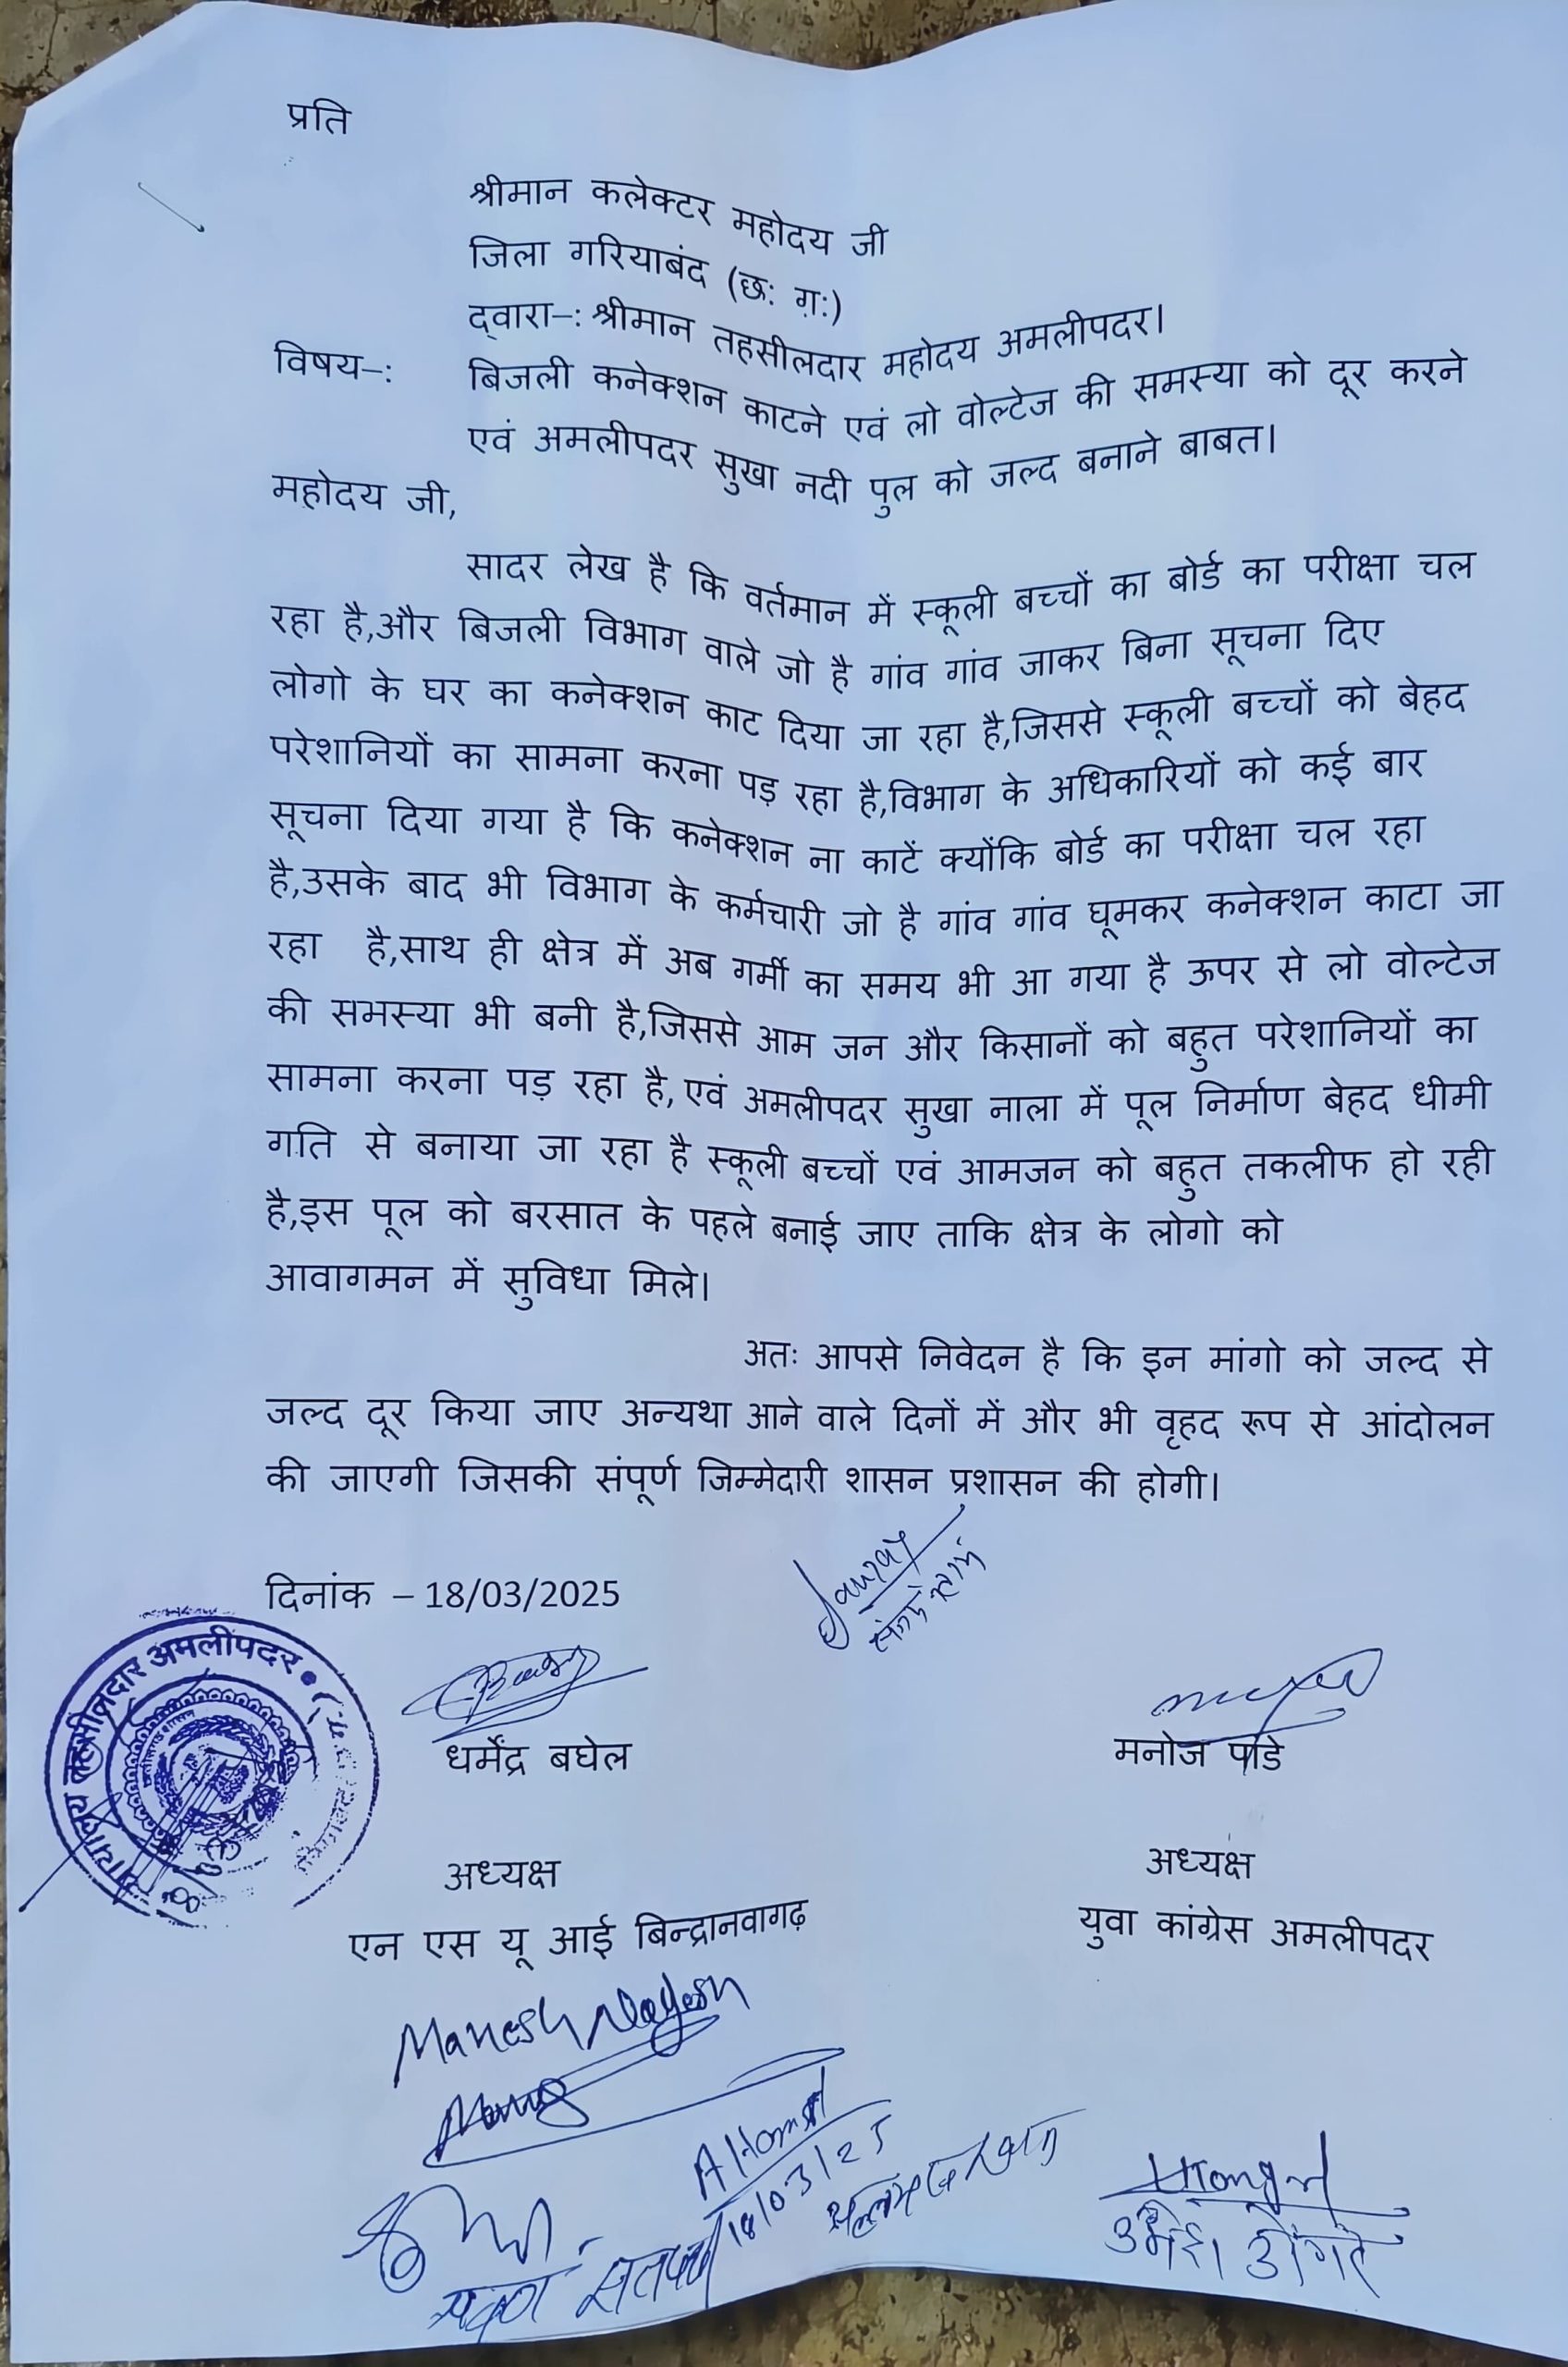 प्रति
श्रीमान कलेक्टर महोदय जी
जिला गरियाबंद (छ: ग़:)
द्वारा–: श्रीमान तहसीलदार महोदय अमलीपदर।
विषय–: बिजली कनेक्शन काटने एवं लो वोल्टेज की समस्या को दूर करने
एवं अमलीपदर सुखा नदी पुल को जल्द बनाने बाबत।
महोदय जी,
सादर लेख है कि वर्तमान में स्कूली बच्चों का बोर्ड का परीक्षा चल
रहा है,और बिजली विभाग वाले जो है गांव गांव जाकर बिना सूचना दिए
लोगो के घर का कनेक्शन काट दिया जा रहा है,जिससे स्कूली बच्चों को बेहद
परेशानियों का सामना करना पड़ रहा है,विभाग के अधिकारियों को कई बार
सूचना दिया गया है कि कनेक्शन ना काटें क्योंकि बोर्ड का परीक्षा चल रहा
है,उसके बाद भी विभाग के कर्मचारी जो है गांव गांव घूमकर कनेक्शन काटा जा
रहा है,साथ ही क्षेत्र में अब गर्मी का समय भी आ गया है ऊपर से लो वोल्टेज
की समस्या भी बनी है,जिससे आम जन और किसानों को बहुत परेशानियों का
सामना करना पड़ रहा है, एवं अमलीपदर सुखा नाला में पूल निर्माण बेहद धीमी
गति से बनाया जा रहा है स्कूली बच्चों एवं आमजन को बहुत तकलीफ हो रही
है,इस पूल को बरसात के पहले बनाई जाए ताकि क्षेत्र के लोगो को
आवागमन में सुविधा मिले।
अतः आपसे निवेदन है कि इन मांगो को जल्द से
जल्द दूर किया जाए अन्यथा आने वाले दिनों में और भी वृहद रूप से आंदोलन
की जाएगी जिसकी संपूर्ण जिम्मेदारी शासन प्रशासन की होगी।
दिनांक – 18/03/2025
तहसीलदार अमलीपदर
धर्मेंद्र बघेल
मनोज पांडे
अध्यक्ष
अध्यक्ष
एन एस यू आई बिन्द्रानवागढ़
युवा कांग्रेस अमलीपदर
Manesh
18/03/25